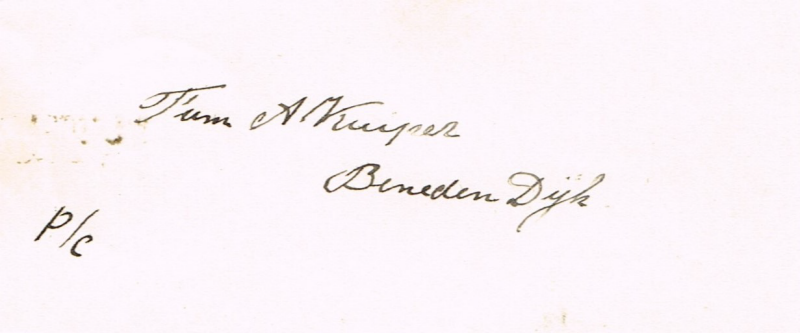 Fam A Kuiper
Beneden Dijk
P/c